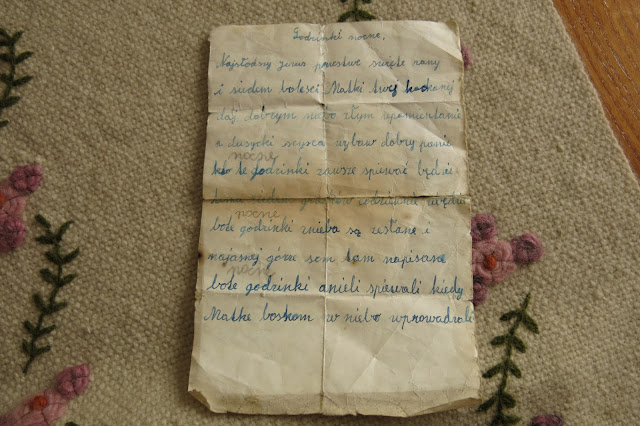 Godzinki nocne.
Najsłodszy Jezus przestwe święte rany
i siedem boleści Matki twej kochanej
daj dobrym niebo złym upamiętanie
a duszycki wybaw dobry panie
nocne
kto te godzinki zawsze śpiewać będzie
nocne
boże godzinki znieba są zesłane i
najasnej górze som tam napisane
nocne
boże godzinki anieli śpiewali kiedy
Matke boskom w niebo wprowadzali